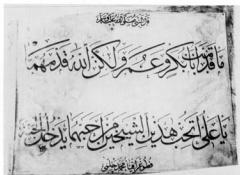 ما قدمت ابا بكر وعمر ولكن الله قدمهما
يا علي اتحب هذين الشيخين احبهما تدخل الجنة